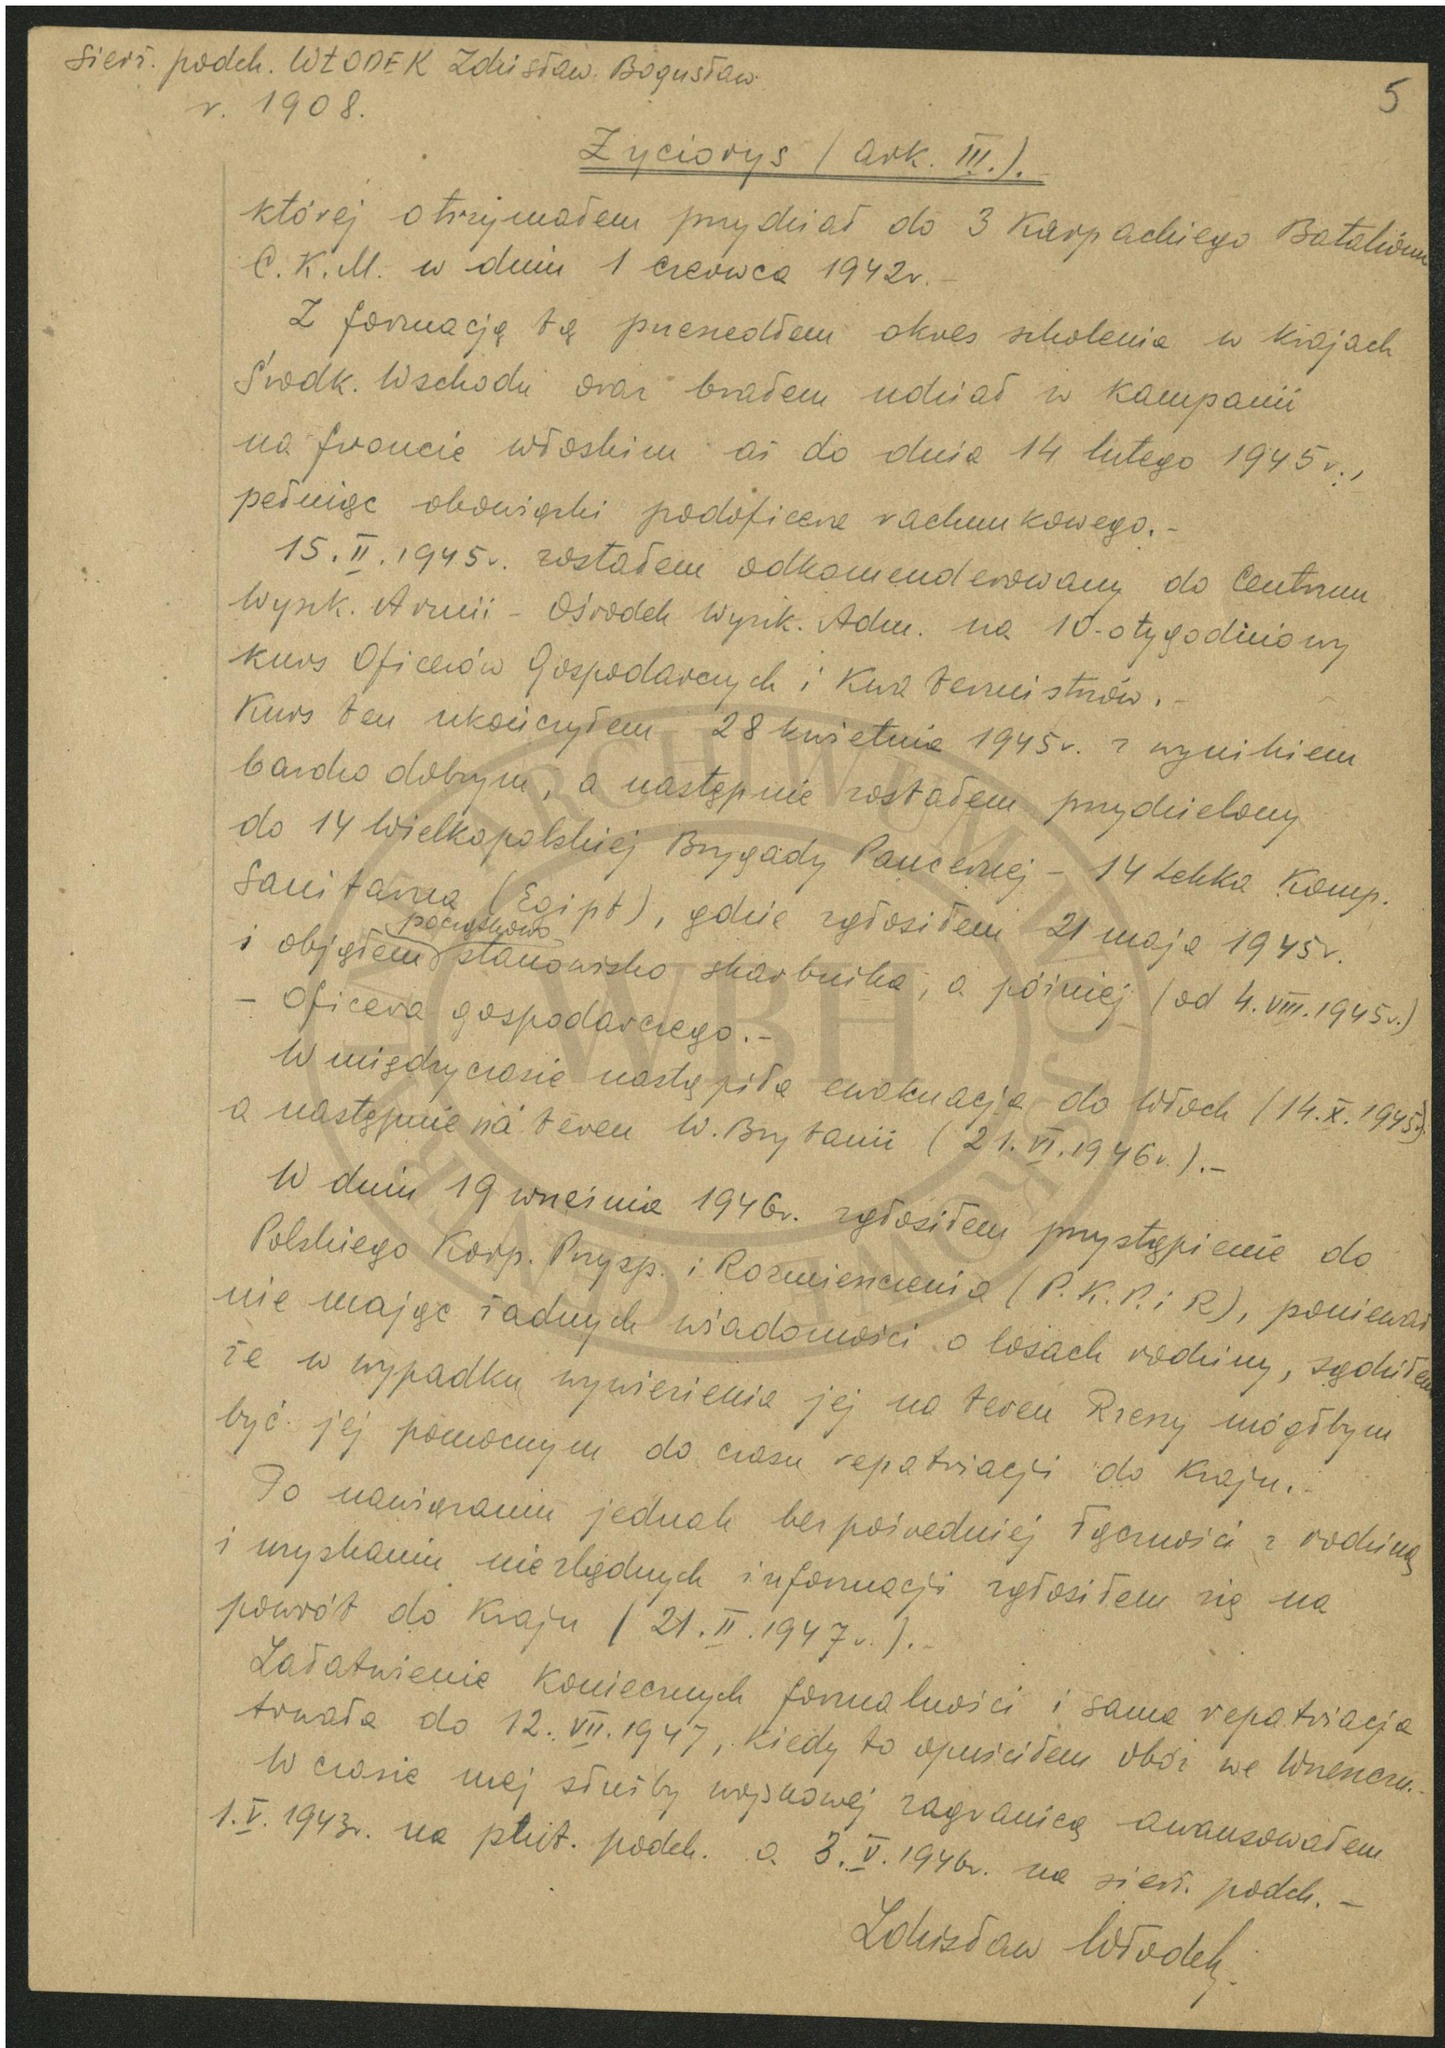 Sierż. podch. WŁODEK Zdzisław Bogusław
r. 1908.
5
Życiorys (ark. III.).
której otrzymałem przydział do 3 Karpackiego Batalionu
C.K.M. w dniu 1 czerwca 1942r.-
Z formacją tą przeszedłem okres szkolenia w krajach
Środk. Wschodu oraz brałem udział w kampanii
na froncie włoskim aż do dnia 14 lutego 1945r.,
pełniąc obowiązki podoficera rachunkowego.-
15.II.1945r. zostałem odkomenderowany do Centrum
Wyszk. Armii - Ośrodek Wyszk. Adm. na 10-otygodniowy
kurs Oficerów Gospodarczych i Kwatermistrzów.-
Kurs ten ukończyłem 28 kwietnia 1945r. z wynikiem
bardzo dobrym, a następnie zostałem przydzielony
do 14 Wielkopolskiej Brygady Pancernej - 14 Lekka Komp.
Sanitarna (Egipt), gdzie zgłosiłem 21 maja 1945r.
początkowo
i objąłem stanowisko skarbnika, a później (od 4.VIII.1945r.)
- Oficera gospodarczego.-
W międzyczasie nastąpiła ewakuacja do Włoch (14.X.1945r)
a następnie na teren W. Brytanii (21.VI.1946r.).-
W dniu 19 września 1946r. zgłosiłem przystąpienie do
Polskiego Korp. Przysp. i Rozmieszczenia (P.K.P. i R), ponieważ
nie mając żadnych wiadomości o losach rodziny, sądziłem
że w wypadku wywiezienia jej na teren Rzeszy mógłbym
być jej pomocnym do czasu repatriacji do Kraju.-
Po nawiązaniu jednak bezpośredniej łączności z rodziną
i uzyskaniu niezbędnych informacji zgłosiłem się na
powrót do Kraju (21.II.1947r.).-
Załatwienie koniecznych formalności i sama repatriacja
trwała do 12.VII.1947, kiedy to opuściłem obóz we Wrzeszczu.-
W czasie mej służby wojskowej zagranicą awansowałem
1.V.1943r. na plut. podch. a 3.V.1946r. na sierż. podch.-
Zdzisław Włodek.-
ARCHIWUM
WBH